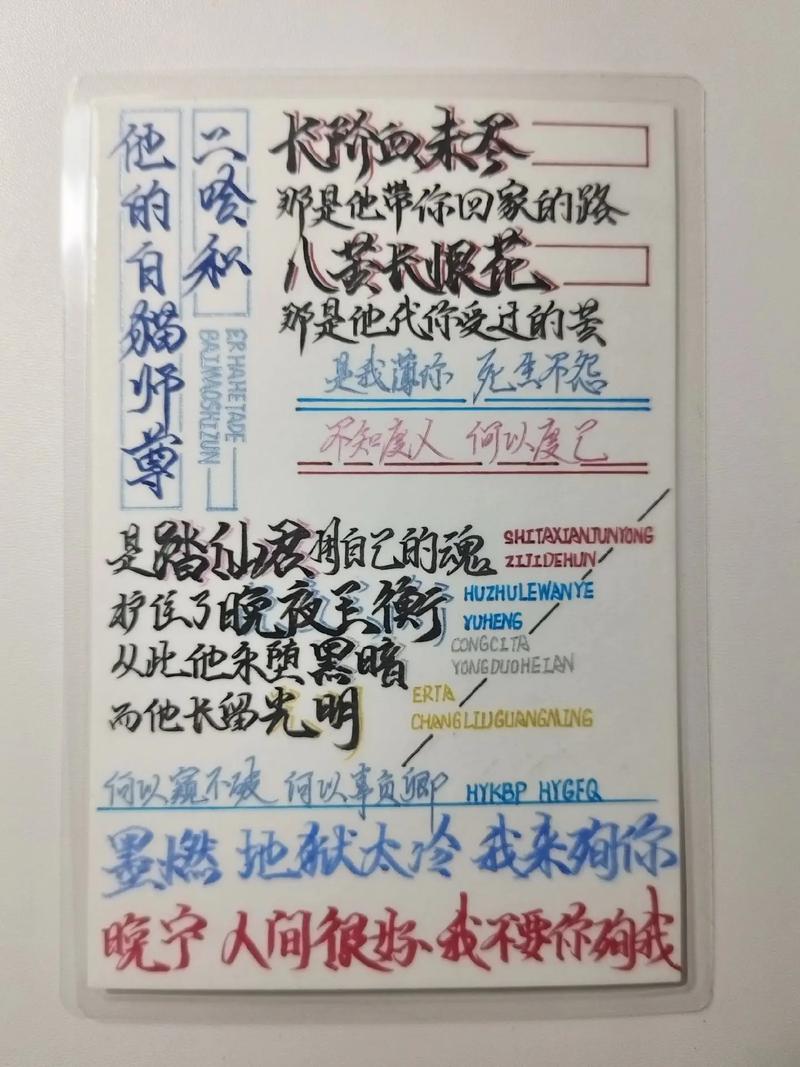 二哈和
他的白猫师尊
ERHAHETADE
BAIMAOSHIZUN
长阶血未尽
那是他带你回家的路
八苦长恨花
那是他代你受过的苦
是我薄你 死生不怨
不知度人 何以度己
是踏仙君用自己的魂
SHITAXIANJUNYONG
ZIJIDEHUN
护住了晚夜玉衡
HUZHULEWANYE
YUHENG
从此他永堕黑暗
CONGCITA
YONGDUOHEIAN
而他长留光明
ERTA
CHANGLIUGUANGMING
何以窥不破 何以事负卿
HYKBP HYGFQ
墨燃 地狱太冷 我来殉你
晚宁 人间很好 我不要你殉我